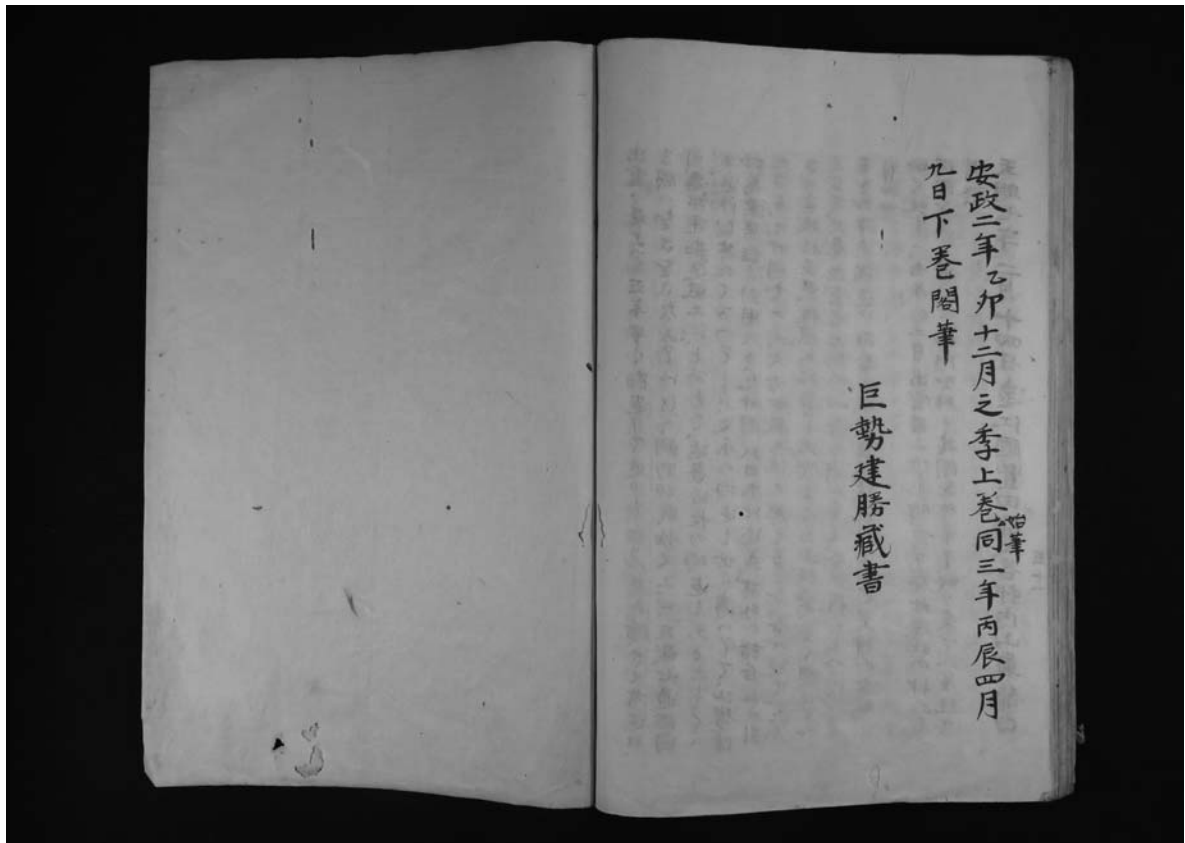 安政二年乙卯十二月之季上巻始筆同三年丙辰四月
九日下巻閣筆
巨勢建勝蔵書